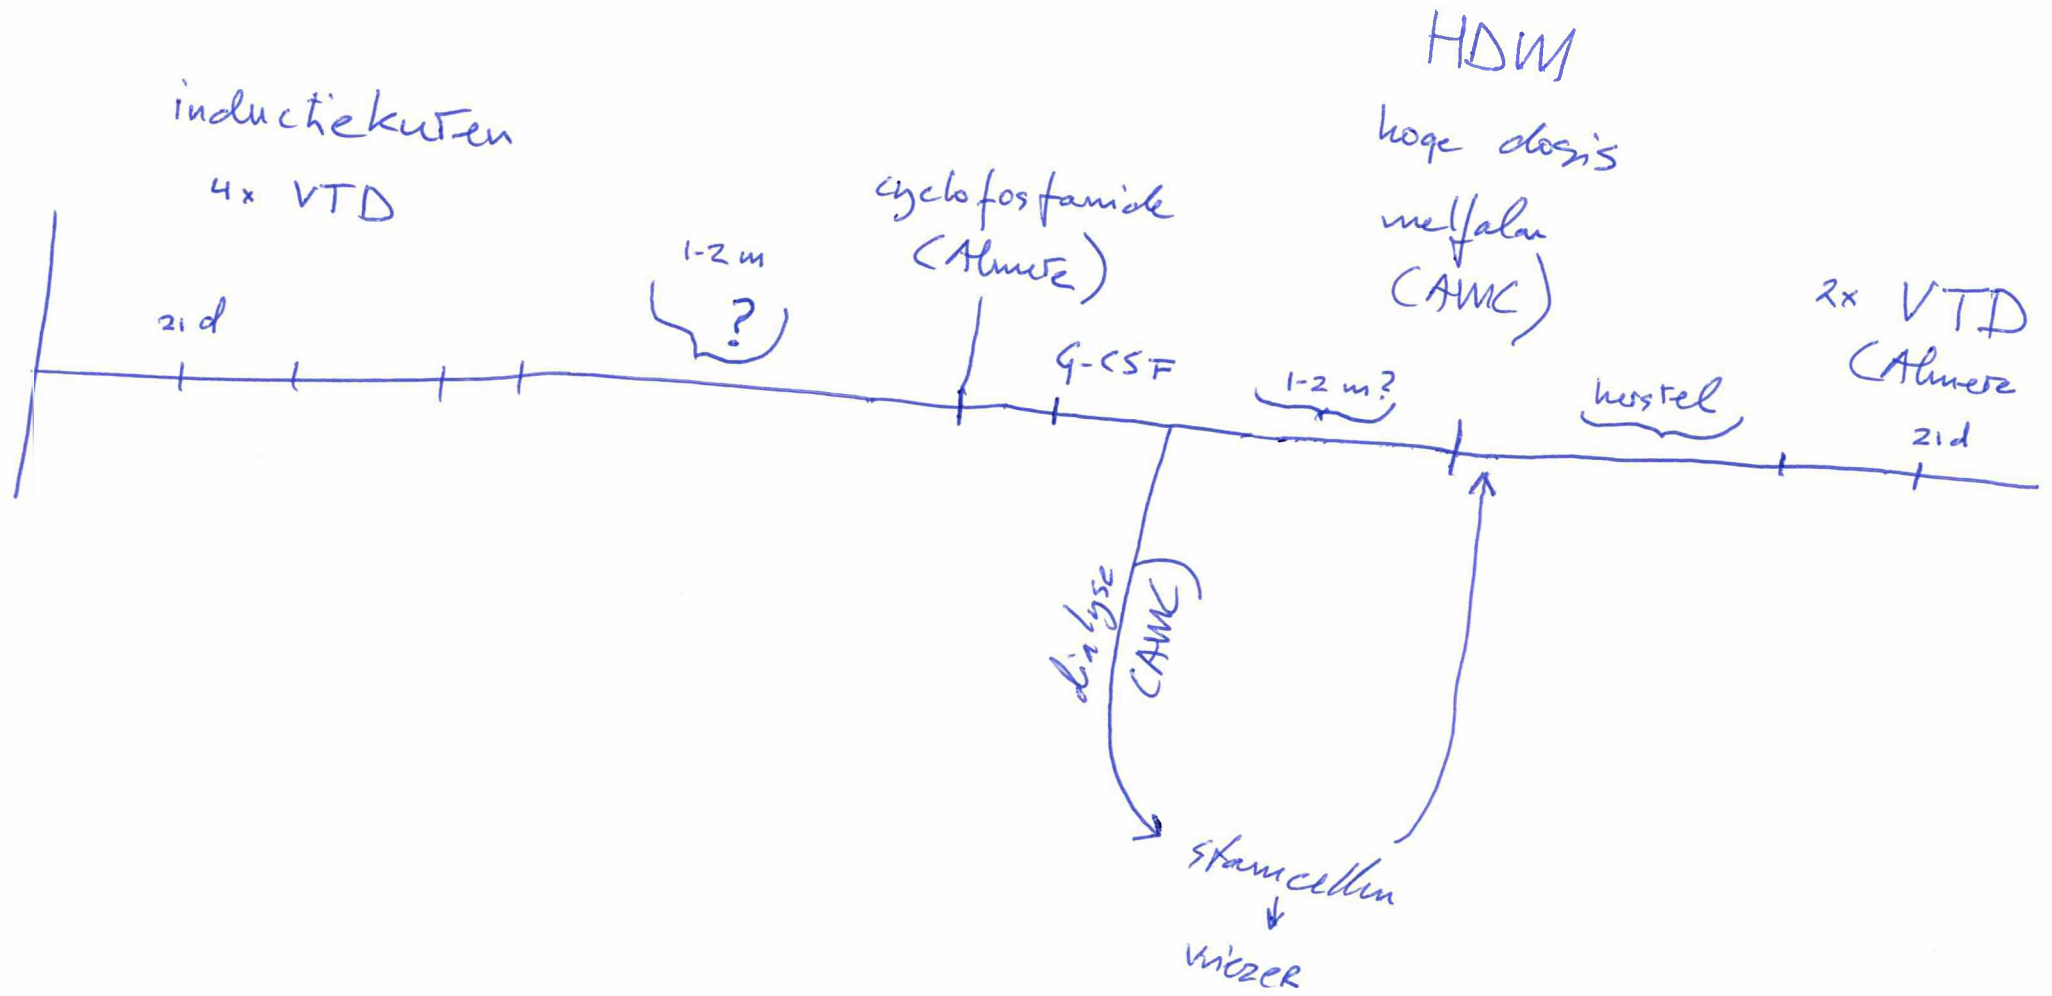 inductiekuren
4x VTD
21 d
1-2 m
?
cyclofosfamide
(Almere)
G-CSF
1-2 m?
HDM
hoge dosis
melfalan
(AMC)
herstel
2x VTD
(Almere
21d
dialyse
(AMC)
stamcellen
vriezer